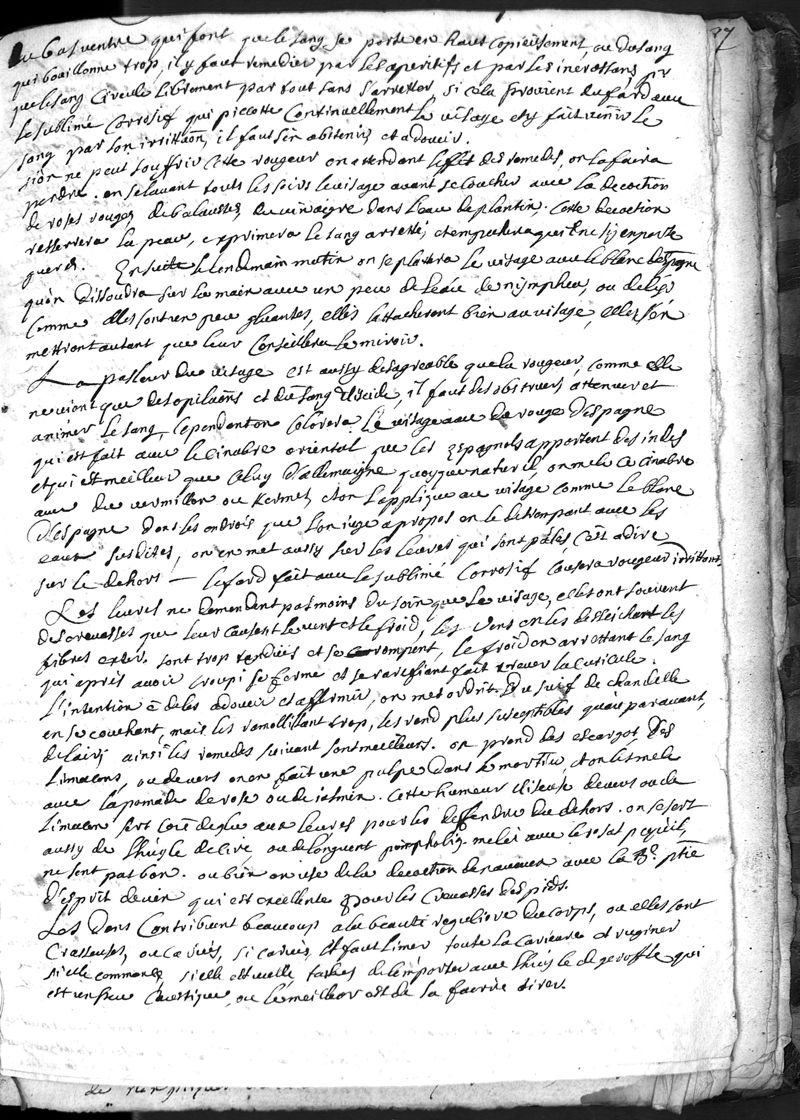 37
du bas ventre qui font que le sang se porte en haut copieusement, ou du sang
qui bouillonne trop, il y faut remedier par les aperitifs et par les incrassans pr
que le sang circule librement par tout sans s'arretter, si cela provient du fard avec
le sublimé corrosif qui picotte continuellement le visage et y fait venir le
sang par son irritaon, il faut s'en abstenir et adoucir.
si on ne peut souffrir cette rougeur en attendant l'effet des remedes, on la faira
perdre. en se lavant touts les soirs le visage avant se coucher avec la decoction
de roses rouges, de balaustes, du vinaigre dans l'eau de plantin. Cette decoction
resserrera la peau, exprimera le sang arresté, et empechera qu'il ne s'y en porte
gueres. Ensuite le lendemain matin on se platrera le visage avec le blanc d'Espagne
qu'on dissoudra sur la main avec un peu de l'eau de nymphea, ou de lys
comme elles sont un peu gluantes, elles l'attacheront bien au visage, elles s'en
mettront autant que leur conseillera le miroir.
La pasleur du visage est aussy desagreable que la rougeur, comme elle
ne vient que des opilaons et du sang viscide, il faut desobstruer, attenuer et
animer le sang, cependant on colorera le visage avec du rouge d'espagne
qui est fait avec le cinabre oriental que les Espagnols apportent des indes
et qui est meilleur que celuy d'allemaigne quoyque naturel, on mele ce cinabre
avec du vermillon ou kermes, et on l'applique au visage comme le blanc
d'Espagne dans les endrois que l'on juge a propos on le detrempait avec les
eaux susdites, on en met aussy sur les levres qui sont pâles, c'est a dire
sur le dehors — le fard fait avec le sublimé corrosif causera rougeur irrittant
Les levres ne demandent pas moins du soin que le visage, elles ont souvent
des crevasses que leur causent le vent et le froid, les vens en les desseichant les
fibres exter. sont trop tendues et se rompent, le froid en arrettant le sang
qui apres avoir croupi se forme et se rarefiant fait crever la cuticule.
L'intention e de les adoucir et affermir, on met ordrit. du suif de chandelle
en se couchant, mais les ramollissant trop, les rend plus susceptibles qu'auparavant,
de l'air, ainsi les remedes suivant sont meilleurs. on prend des escargots, des
limacons, ou de vers on en fait une pulpe dans le mortier, et on les mele
avec la pomade de rose ou de jasmin. cette humeur visceuse de vers ou de
limacon sert coe de glu aux levres pour les deffendre du dehors. on se sert
aussy de l'huyle de cire ou de l'onguent pompholig. melés avec le rosat parceq'il
ne sent pas bon. ou bien on use de la decoction de naveaux avec la 3e. ptie
d'esprit de vin qui est excellente pour les crevasses des pieds.
Les dens contribuent beaucoup a la beauté reguliere du corps, ou elles sont
crasseuses, ou cariées, si cariées, il faut limer toute la carieuse et ruginer
si elle commence, si elle est vielle taches de l'emporter avec l'huyle de geroffle qui
est un feu caustique, ou le meilleur est de la faire tirer.